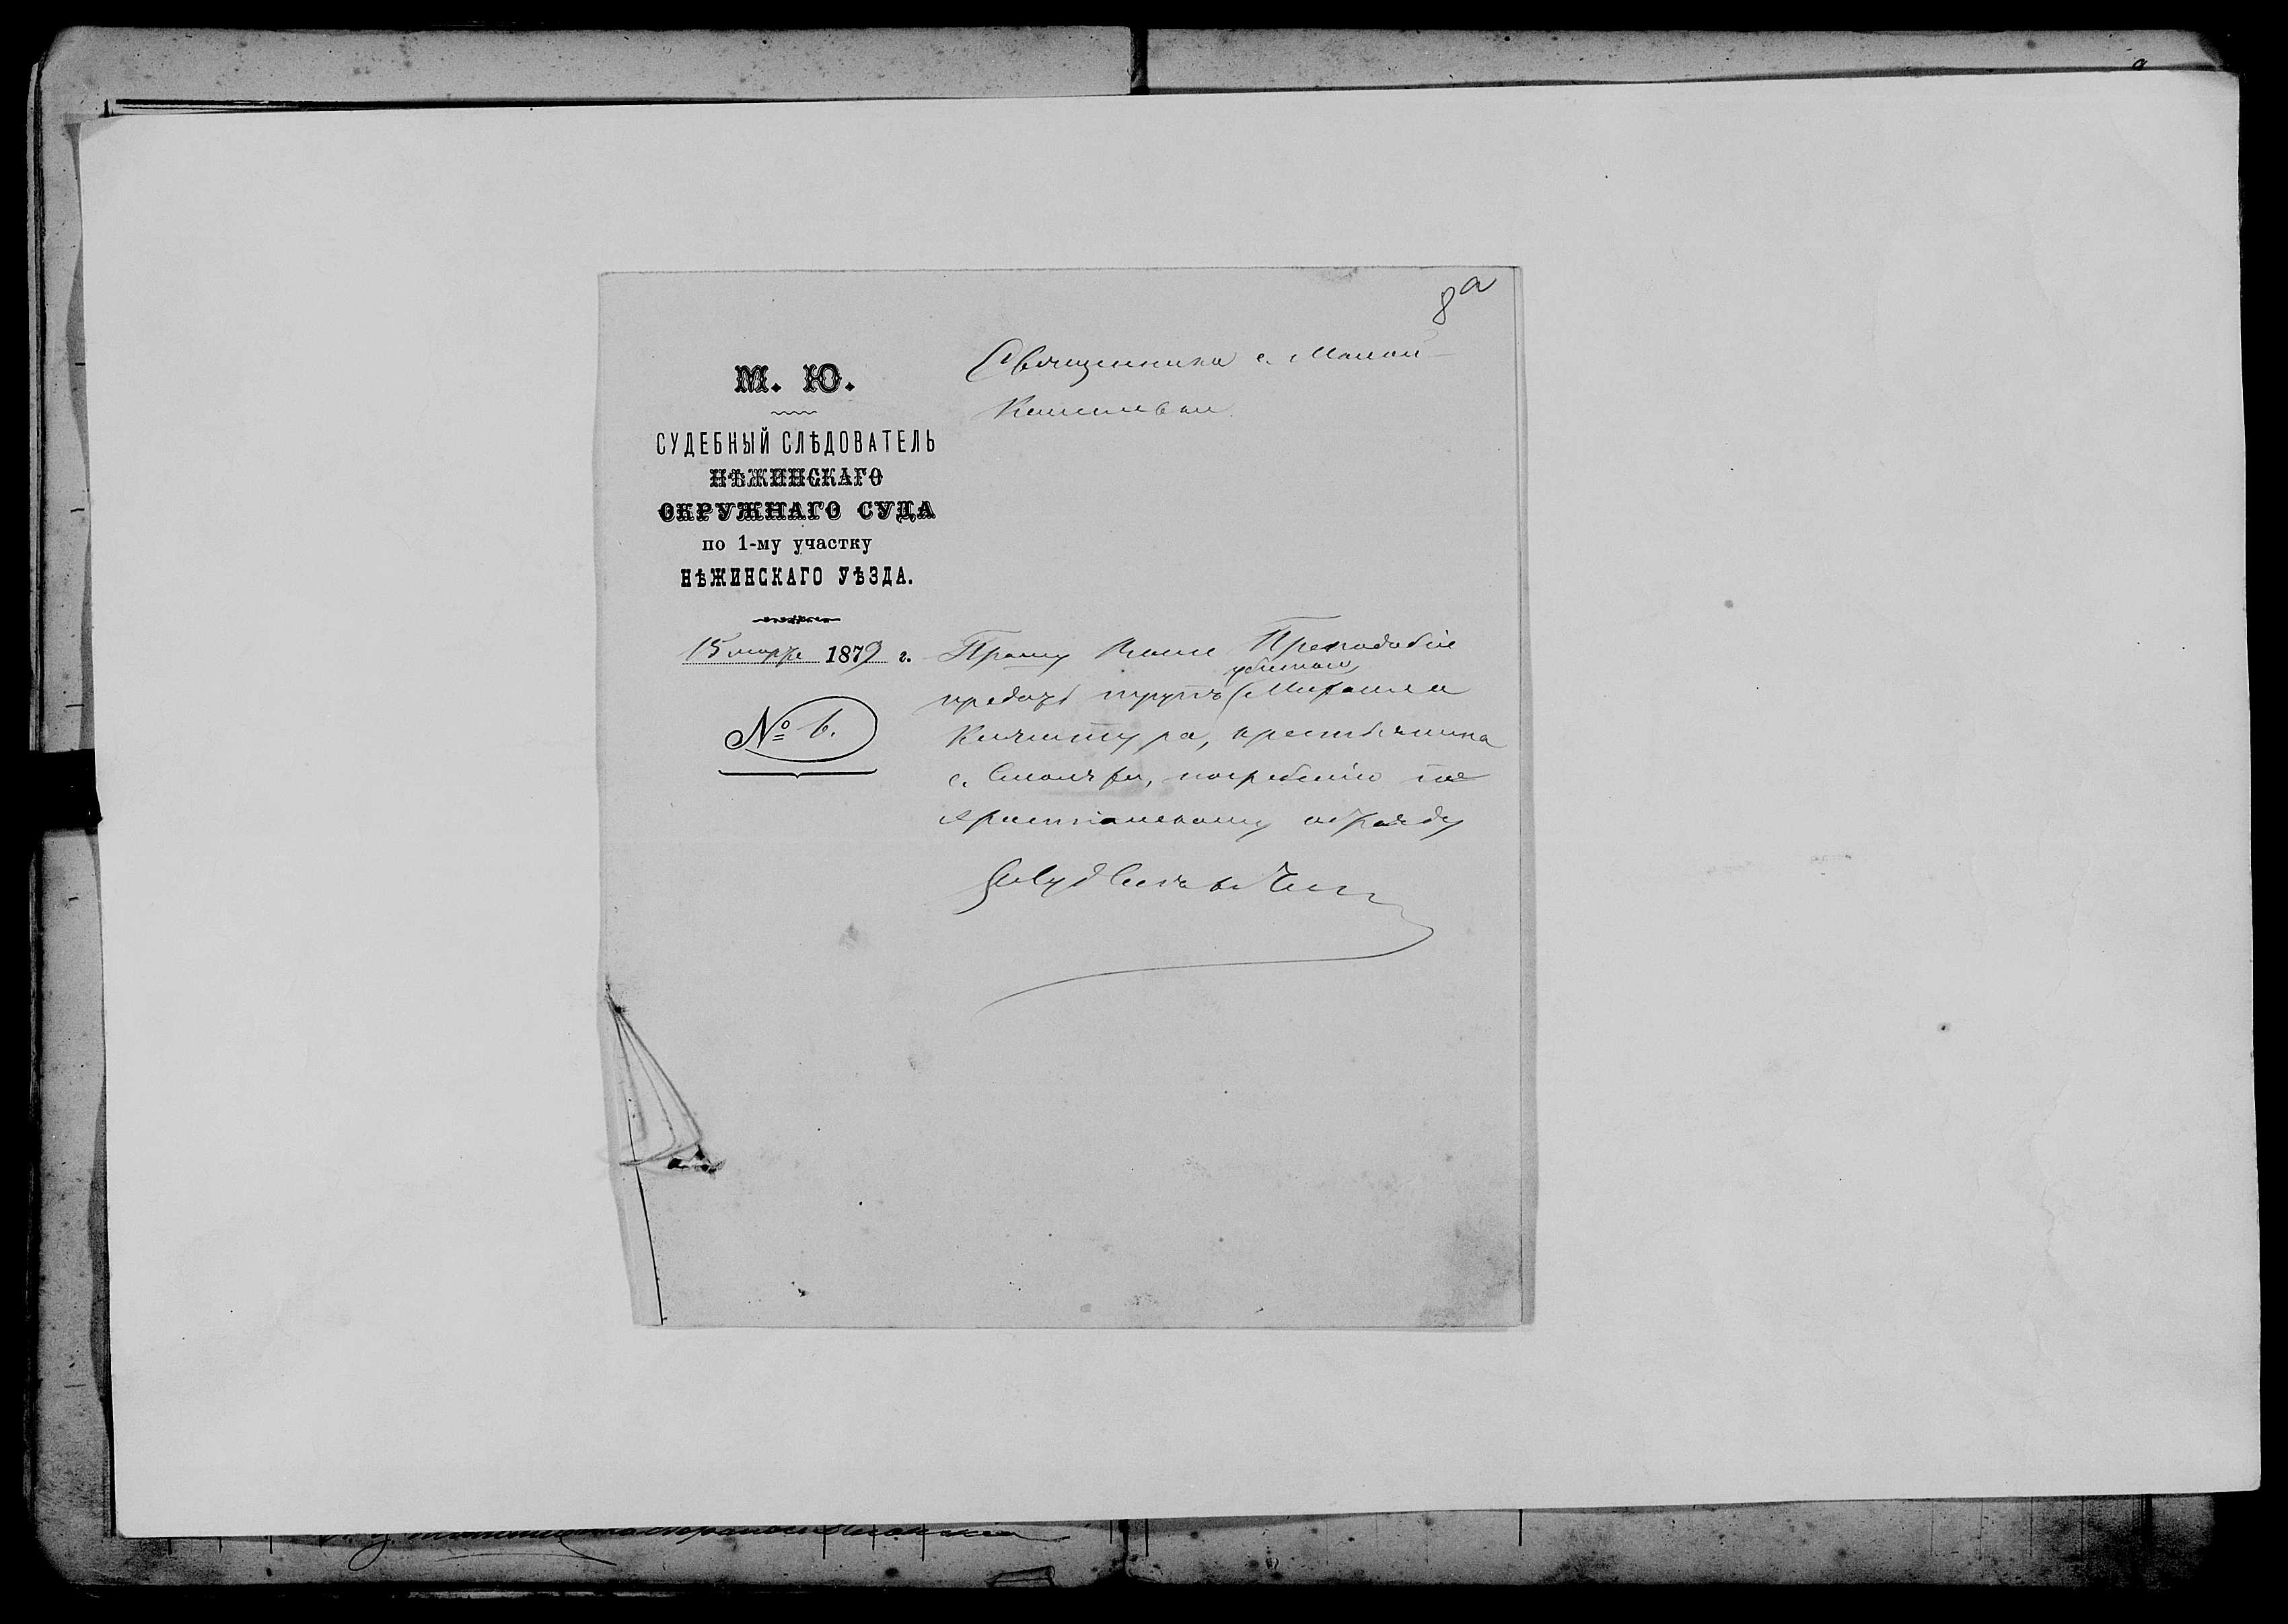 8а
М. Ю.
СУДЕБНЫЙ СЛѢДОВАТЕЛЬ
НѢЖИНСКАГО
ОКРУЖНАГО СУДА
по 1-му участку
НѢЖИНСКАГО УѢЗДА.
15 марта 1879 г.
№ 6.
Священника с. Малой
Кошелевки
Прошу Ваше Преподобіе
убитаго
предать трупъ Михаила
крестьянина
с. погребенію по
христіанскому обряду